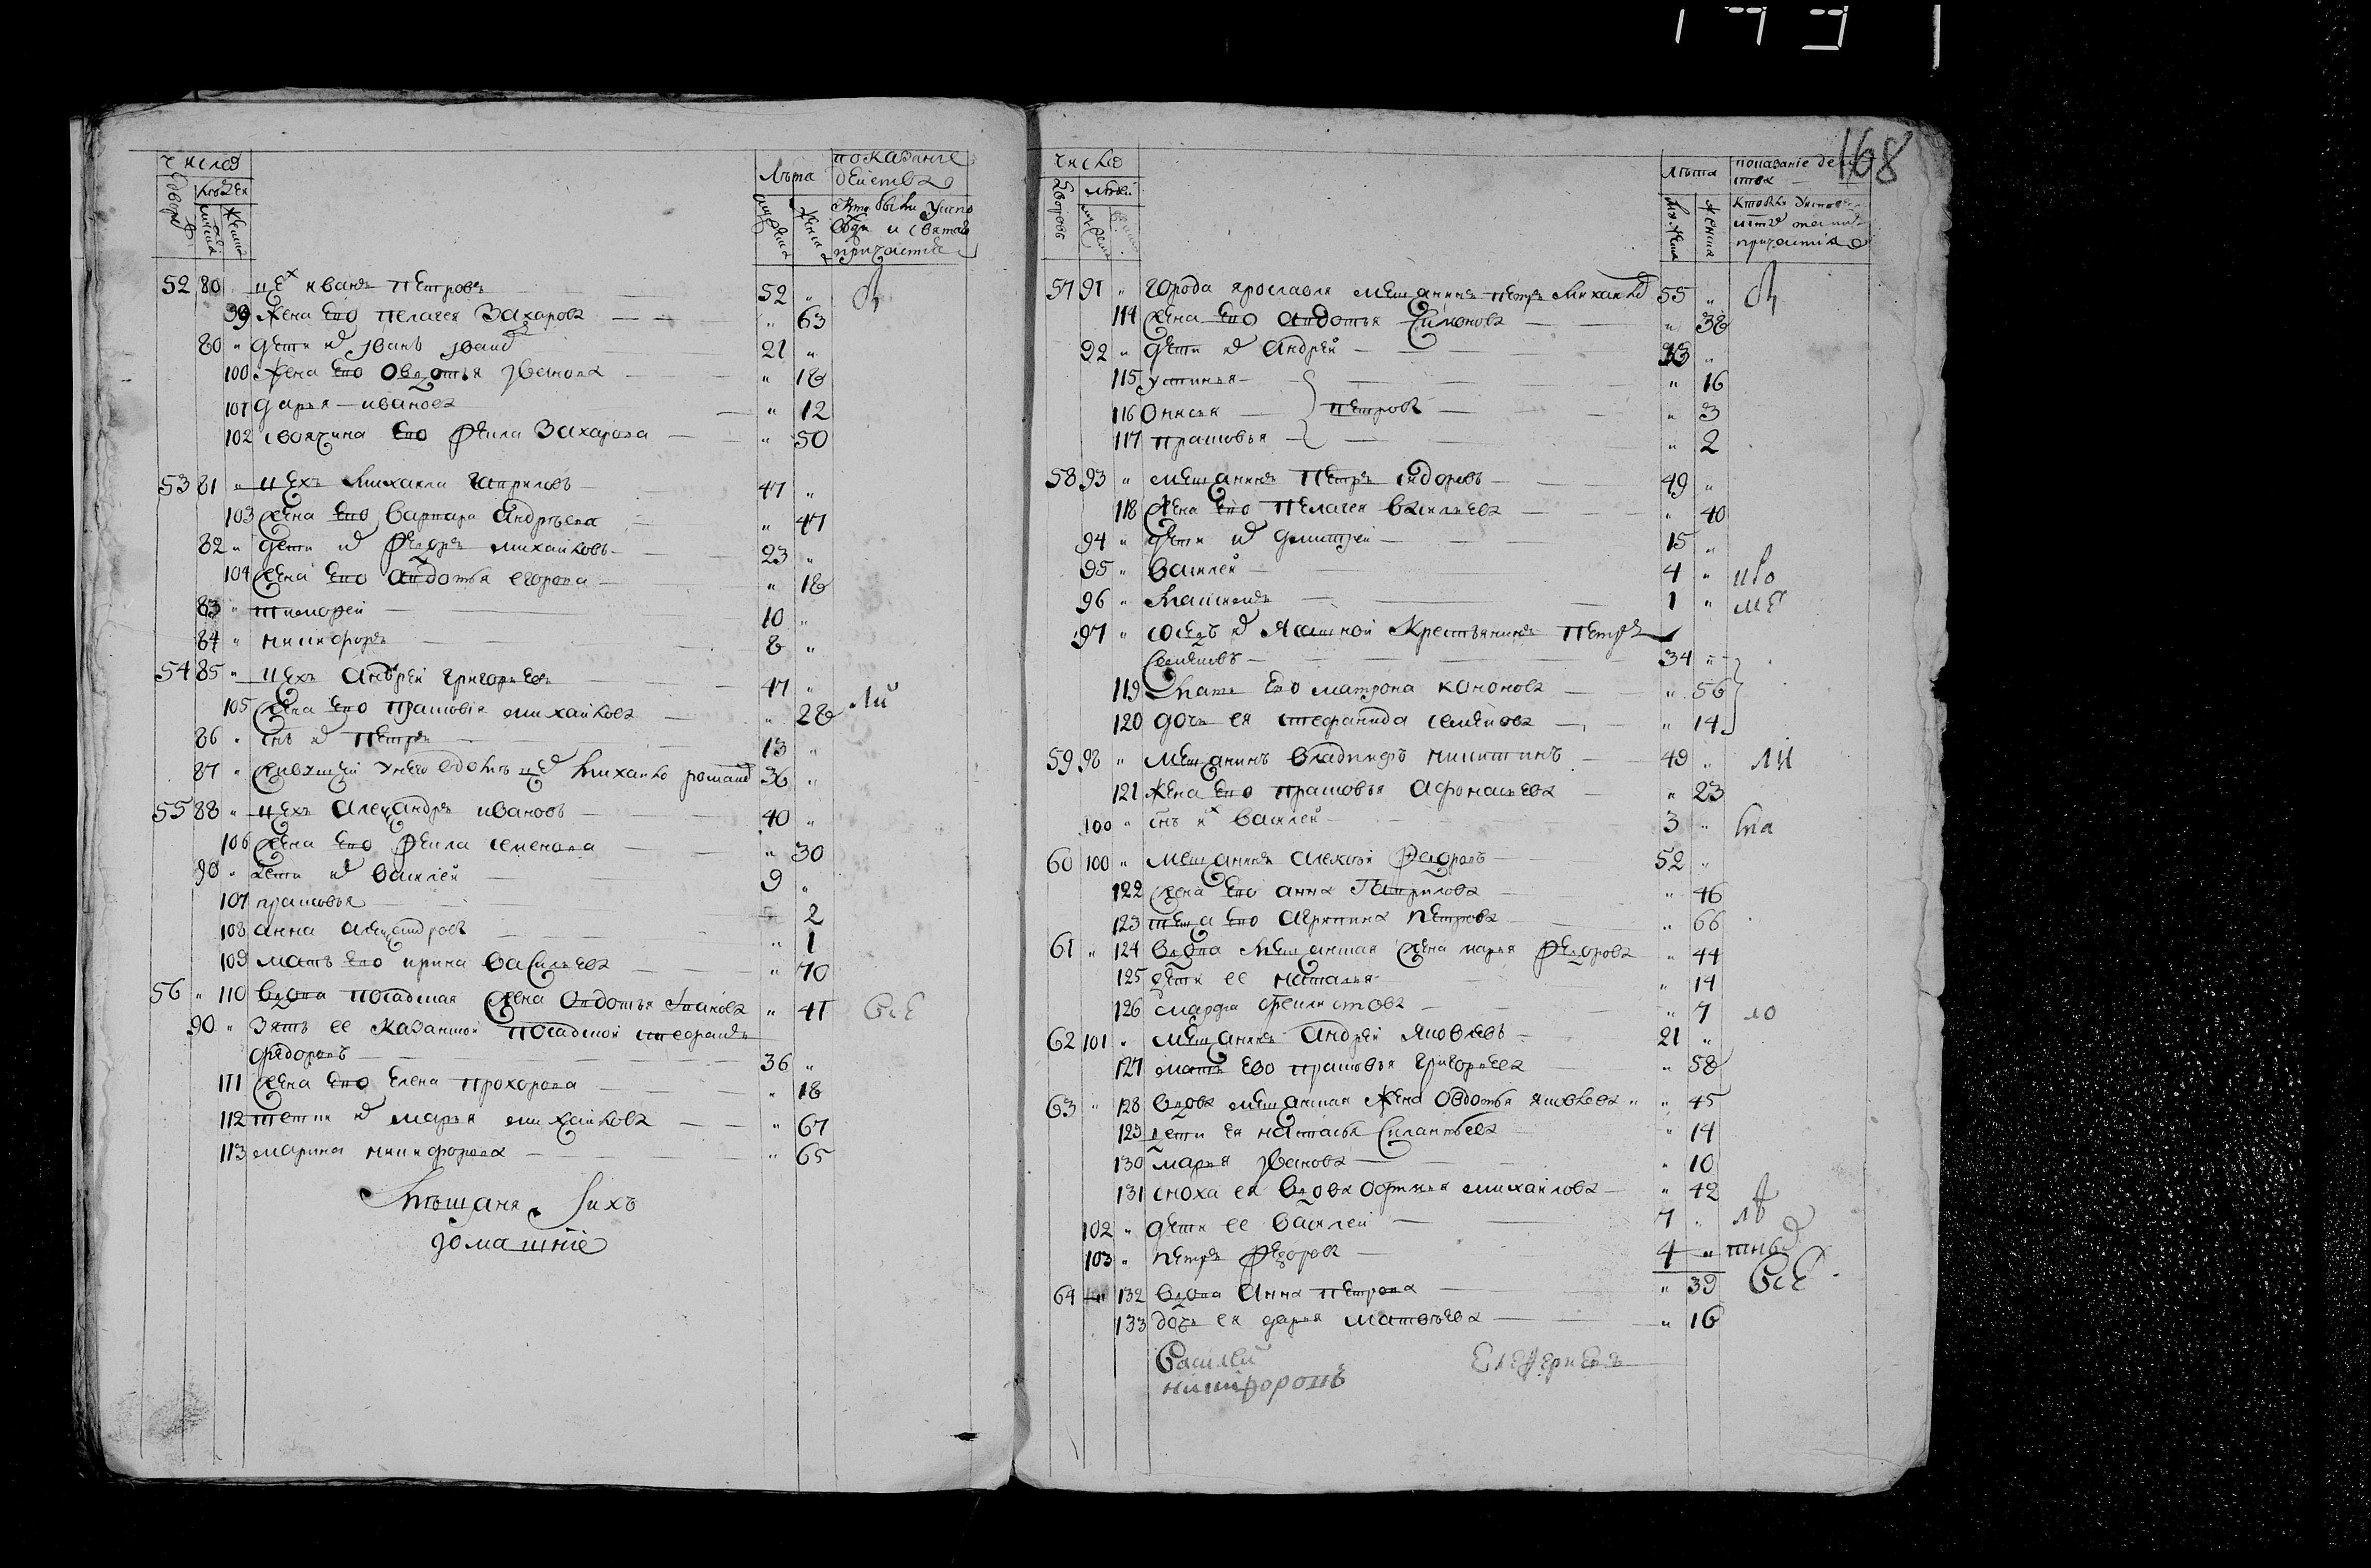 168
число
лѣта
показание
действа
дворов
людей
мужеска
женска
Кто были у испо
веди и святаго
причастия
52 80 " цех Иванъ Петровъ 52 "
99 Жена ево Пелагея Захарова " 63
80 " дети их Iванъ Iванов 21 "
100 Жена ево Овдотья Iванова " 18
101 дарья иванова " 12
102 своячина ево Фекла Захарова " 50
53 81 " цехъ Михаила Гавриловъ 47 "
103 Жена ево Варвара Андрѣева " 47
82 " дети их Федоръ михайловъ 23 "
104 Жена ево Авдотья егорова " 18
83 " тимофей 10 "
84 " никифоръ 8 "
54 85 " цехъ Андрей Григорьевъ 47 "
105 Жена ево Прасковiя михайлова " 28
86 " снъ их Петръ 13 "
87 " живущей у нево в домѣ цех Михайло роман 36 "
55 88 " цехъ Александръ ивановъ 40 "
106 Жена ево Фекла семенова " 30
90 " дети их Василей 9 "
107 прасковья 2
108 анна александров " 1
109 мать ево ирина Васильева " 70
56 " 110 Вдова посадская жена Овдотья " 41 Все
90 " Зять ее Казанской посадской стефанъ
федоровъ 36 "
111 Жена ево Елена Прохорова " 18
112 тетки их марья михайлова " 67
113 марина никифорова " 65
Мѣщаня ихъ
домашнiе
число
лѣта
показанiе дей
ства
дворовъ
людей
причастiя
57 91 " Города ярославля мещанинъ петръ Михайло 55 "
114 Жена ево Авдотья Симонова " 38
92 " дети их Андрей 13 "
115 устинья " 16
116 Онисья петров " 3
117 прасковья " 2
58 93 " мещанинъ Петръ сидоровъ 49 "
118 Жена ево Пелагея Васильева " 40
94 " дети их Дмитрей 15 "
95 " Василей 4 "
96 " Максимъ 1 "
97 " соседъ их Ясашной Крестьянинъ Петръ
Семеновъ 34 "
119 Мать ево матрона кононова " 56
120 дочь ея стефанида семенова " 14
59 98 " Мещанинъ никитинъ 49 "
121 Жена ево прасковья Афонасьева " 23
100 " снъ их Василей 3 "
60 100 " Мещанинъ алексей Федоровъ 52 "
122 жена ево анна Гаврилова " 46
123 теща ево агрипина Петрова " 66
61 " 124 Вдова Мещанская жена марья Федорова " 44
125 дети ее наталья " 14
126 марфа " 7
62 101 " Мещанинъ Андрей Яковлевъ 21 "
127 мать ево прасковья Григорьева " 58
63 " 128 вдова мещанская жена Овдотья яковлева " 45
129 дети ея настасья Силантьева " 14
130 марья Iванова " 10
131 сноха ея Вдова михайлова " 42
102 " дети ее Василей 7 "
103 " петръ Федоров 4 "
64 " 132 Вдова Анна петрова " 39 Все
133 дочь ея дарья Матвѣева " 16
Василей
никифоровъ